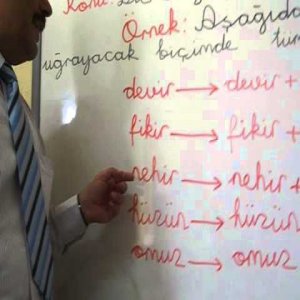 Konu:
Örnek: Aşağıda
uğrayacak biçimde tüm
devir → devir +
fikir → fikir +
nehir → nehir +
hüzün → hüzün
omuz → omuz